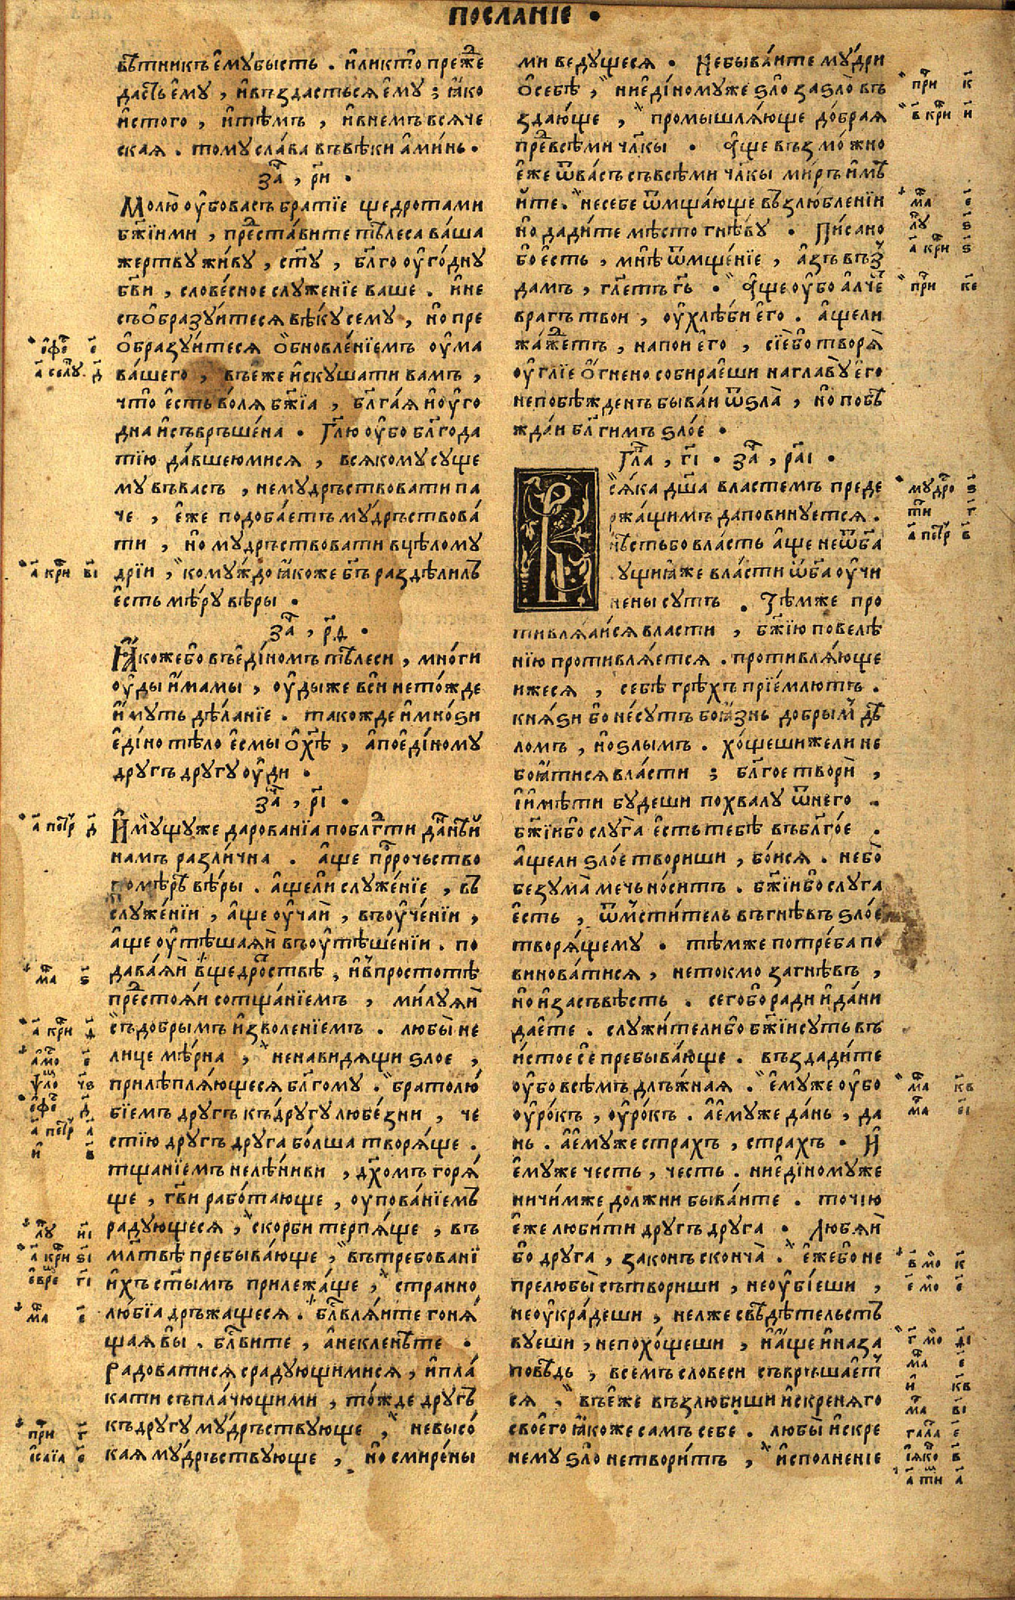 ПОСЛАНІЕ •
вѣтникъ ємꙋбысть . и҆ликто преже
дастъ ємꙋ , и҆въздастьсѧ ємꙋ ; ꙗко
и҆стого , и҆тѣмъ , и҆внемъ всѧче
скаѧ . томꙋ слава въвѣки а҆минь .
за҃ , р҃и •
Молю оу҆бо васъ братїе щедротами
бж҃їими , преставите тѣлеса ваша
жертвꙋ живꙋ , ст҃ꙋ , бл҃го оу҆годнꙋ
бг҃ви , словесное слꙋженїе ваше . и҆не
съѻбразꙋитесѧ вѣкꙋ семꙋ , но пре
ѻбразꙋитесѧ ѻбновленїемъ оу҆ма
вашего , въєже и҆скꙋшати вамъ ,
что єсть волѧ бж҃їа , бл҃гаѧ и҆ оу҆го
дна и҆съвръшена . Гл҃ю оу҆бо бл҃года
тїю давшеюмисѧ , всѧкомꙋ сꙋще
мꙋ въвасъ , немꙋдръствовати па
че , єже подобаетъ мꙋдръствова
ти , но мꙋдръствовати вцѣломꙋ
дрїи , комꙋждо ꙗкоже бг҃ъ раздѣлилъ
єсть мѣрꙋ вѣры .
за҃ , р҃д •
Ꙗкоже бо въєдїномъ тѣлеси , многи
оу҆ды и҆мамы , оу҆ды же вси нетожде
и҆мꙋть дѣланїе . такожде и҆мноꙃи
єдїно тѣло єсмы ѻ х҃ѣ , а҆поєдїномꙋ
дрꙋгъ дрꙋгꙋ оу҆ди .
за҃ , р҃і •
И҆мꙋщꙋже дарованїа по бл҃гти даннѣй
намъ различна . а҆ще пррочьство
помѣрѣ вѣры . а҆щели слꙋженїе , въ
слꙋженїи , а҆ще оу҆чай , въоу҆ченїи ,
а҆ще оу҆тѣшаѧй въоу҆тѣшенїи . по
даваѧй вщедроствѣ , и҆впростотѣ
престоѧи сотщанїемъ , милꙋѧй
съдобрымъ и҆зволенїемъ . любы не
лице мѣрна , ненавидѧщи ꙃлое ,
прилѣплѧющесѧ бл҃гомꙋ . братолю
бїемъ дрꙋгъ къдрꙋгꙋ любезни , че
стїю дрꙋгъ дрꙋга болша творѧще .
тщанїемъ нелѣниви , дх҃омъ горѧ
ще , гв҃и работающе , оупованїемъ
радꙋющесѧ , скорби терпѧще , въ
мл҃твѣ пребывающе , вътребованї
и҆хъ ст҃ымъ прилежаще , странно
любїа дръжащесѧ . бл҃влѧите гонѧ
щаѧ вы . бл҃вите , а҆некленѣте .
Радоватисѧ срадꙋющимисѧ , и҆пла
кати съплачющими , тожде дрꙋгъ
къдрꙋгꙋ мꙋдръствꙋюще , невысо
каѧ мꙋдръствꙋюще , но смирены
ми ведꙋщесѧ . Небываите мꙋдри
ѻ себѣ , ниєдїномꙋже ꙃло заꙃло въ
здающе , промышлѧюще добраѧ
превсѣми чл҃кы . А҆ще възможно
єже ѿвасъ съвсѣми чл҃кы миръ имѣ
йте . несебе ѿмщающе възлюбленїи
но дадите мѣсто гнѣвꙋ . Писано
бо єсть , мнѣ ѿмщенїе , а҆зъ възъ
дамъ , гл҃етъ гь҃ . А҆ще оу҆бо а҆лчетъ
врагъ твои , оу҆хлѣби єго . а҆щели
жаждетъ , напои єго , сїебо творѧ
оу҆глїе ѻгнено собираєши наглавꙋ єго
непобѣжденъ бываи ѿꙃла , но побѣ
ждаи бл҃гимъ ꙃлое .
Гл҃а , г҃і . за҃ , р҃аі .
Всѧка дш҃а властемъ преде
ржащимъ даповинꙋетсѧ .
нѣстьбо власть а҆ще неѿ бг҃а
сꙋщиꙗже власти ѿ бг҃а оу҆чи
нены сꙋть . Тѣмже про
тивлѧаисѧ власти , бж҃їю повелѣ
нїю противлѧетсѧ . противлѧюще
ижесѧ , себѣ грѣхъ прїемлютъ .
кнѧꙃи бо несꙋть боꙗзнь добрым дѣ
ломъ , но ꙃлымъ . хощешижели не
боꙗтисѧ власти ; бл҃гое твори ,
їимѣти бꙋдеши похвалꙋ ѿнего .
бж҃їибо слꙋга єсть тебѣ въбл҃гое .
а҆щели ꙃлое твориши , боисѧ . небо
безꙋма мечь носитъ . бж҃їибо слꙋга
єсть , ѿмститель въгнѣвъ ꙃлое
творѧщемꙋ . тѣмже потреба по
виноватисѧ , нетокмо загнѣвъ ,
но и҆засъвѣсть . сегобо ради и҆дани
даете . слꙋжителибо бж҃їи сꙋть въ
и҆стое се пребывающе . въздадите
оу҆бо всѣмъ длъжнаѧ . ємꙋже оу҆бо
оу҆рокъ , оу҆рокъ . а҆ємꙋже дань , да
нь . а҆ємꙋже страхъ , страхъ . И҆
ємꙋже честь , честь . ниєдїномꙋже
ничимже должни бываите . точїю
єже любити дрꙋгъ дрꙋга . Любѧй
бо дрꙋга , законъ сконча . єжебо не
прелюбы сътвориши , неоу҆бїеши ,
неоу҆крадеши , нелже свѣдѣтельств
вꙋеши , непохощеши , и҆а҆ще и҆на за
повѣдь , всемъ словеси съвръшает
сѧ , въєже възлюбиши и҆скренѧго
своего ꙗкоже самъ себе . любы и҆скре
немꙋ ꙃло нетворитъ , и҆сполненїе